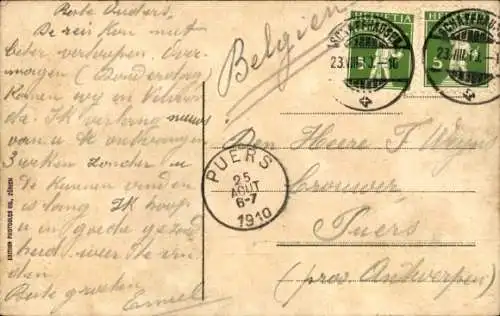 Beste Ouders,
De reis kon niet
beter verloopen. Over-
morgen (Donderdag)
komen wij in Vilvoorde
Ik verlang nieuws
van u te ontvangen
3 weken zonder u
te kunnen vinden
is lang. Ik hoop
u in goede gezond
heid weer te vin
den
Beste groeten
Emiel
EDITION PHOTOGLOB CO., ZÜRICH
Belgien
HELVETIA
HELVETIA
5
SCHAFFHAUSEN
23.VIII.10.
SCHAFFHAUSEN
23.VIII.10.
PUERS
25
AOUT
6-7
1910
Den Heere F
Brouwer
Puers
(prov. Antwerpen)